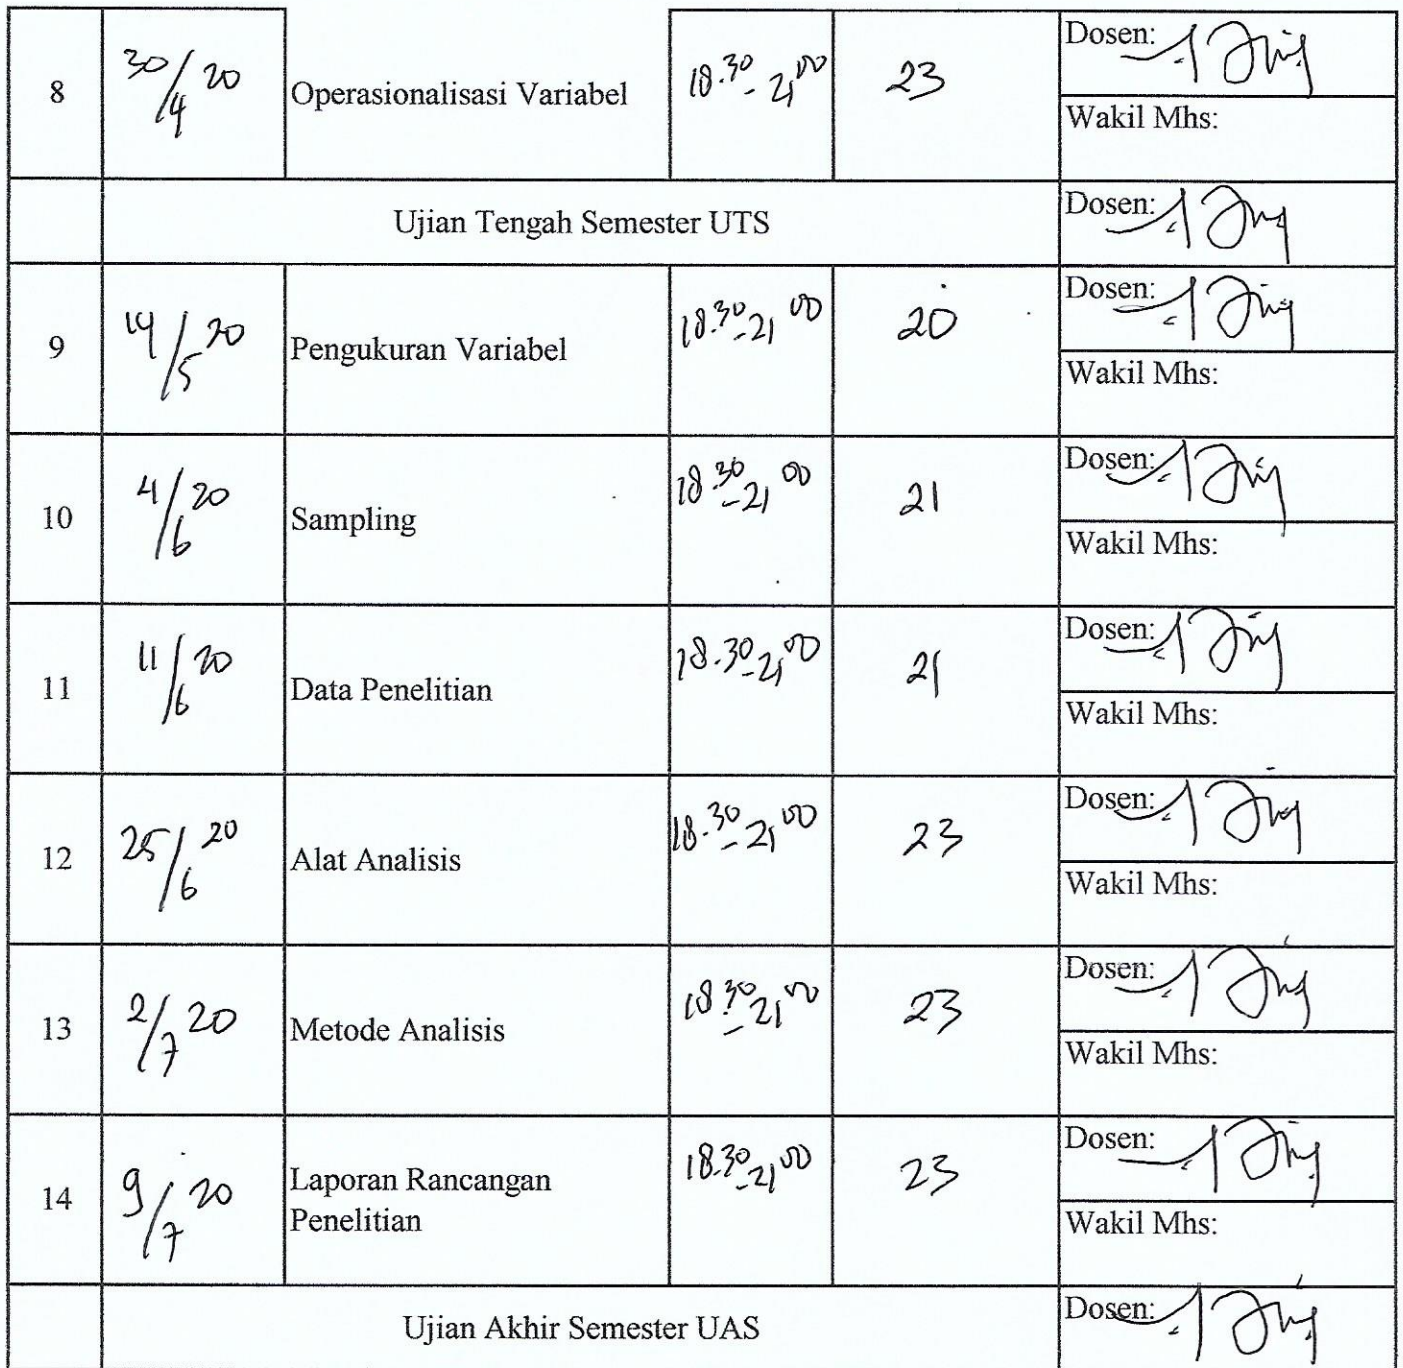 8 30/4 20 Operasionalisasi Variabel 18.30 - 21 00 23 Dosen:
Wakil Mhs:
Ujian Tengah Semester UTS Dosen:
9 14/5 20 Pengukuran Variabel 18.30 - 21 00 20 Dosen:
Wakil Mhs:
10 4/6 20 Sampling 18.30 - 21 00 21 Dosen:
Wakil Mhs:
11 11/6 20 Data Penelitian 18.30 - 21 00 21 Dosen:
Wakil Mhs:
12 25/6 20 Alat Analisis 18.30 - 21 00 23 Dosen:
Wakil Mhs:
13 2/7 20 Metode Analisis 18.30 - 21 00 23 Dosen:
Wakil Mhs:
14 9/7 20 Laporan Rancangan
Penelitian 18.30 - 21 00 23 Dosen:
Wakil Mhs:
Ujian Akhir Semester UAS Dosen: